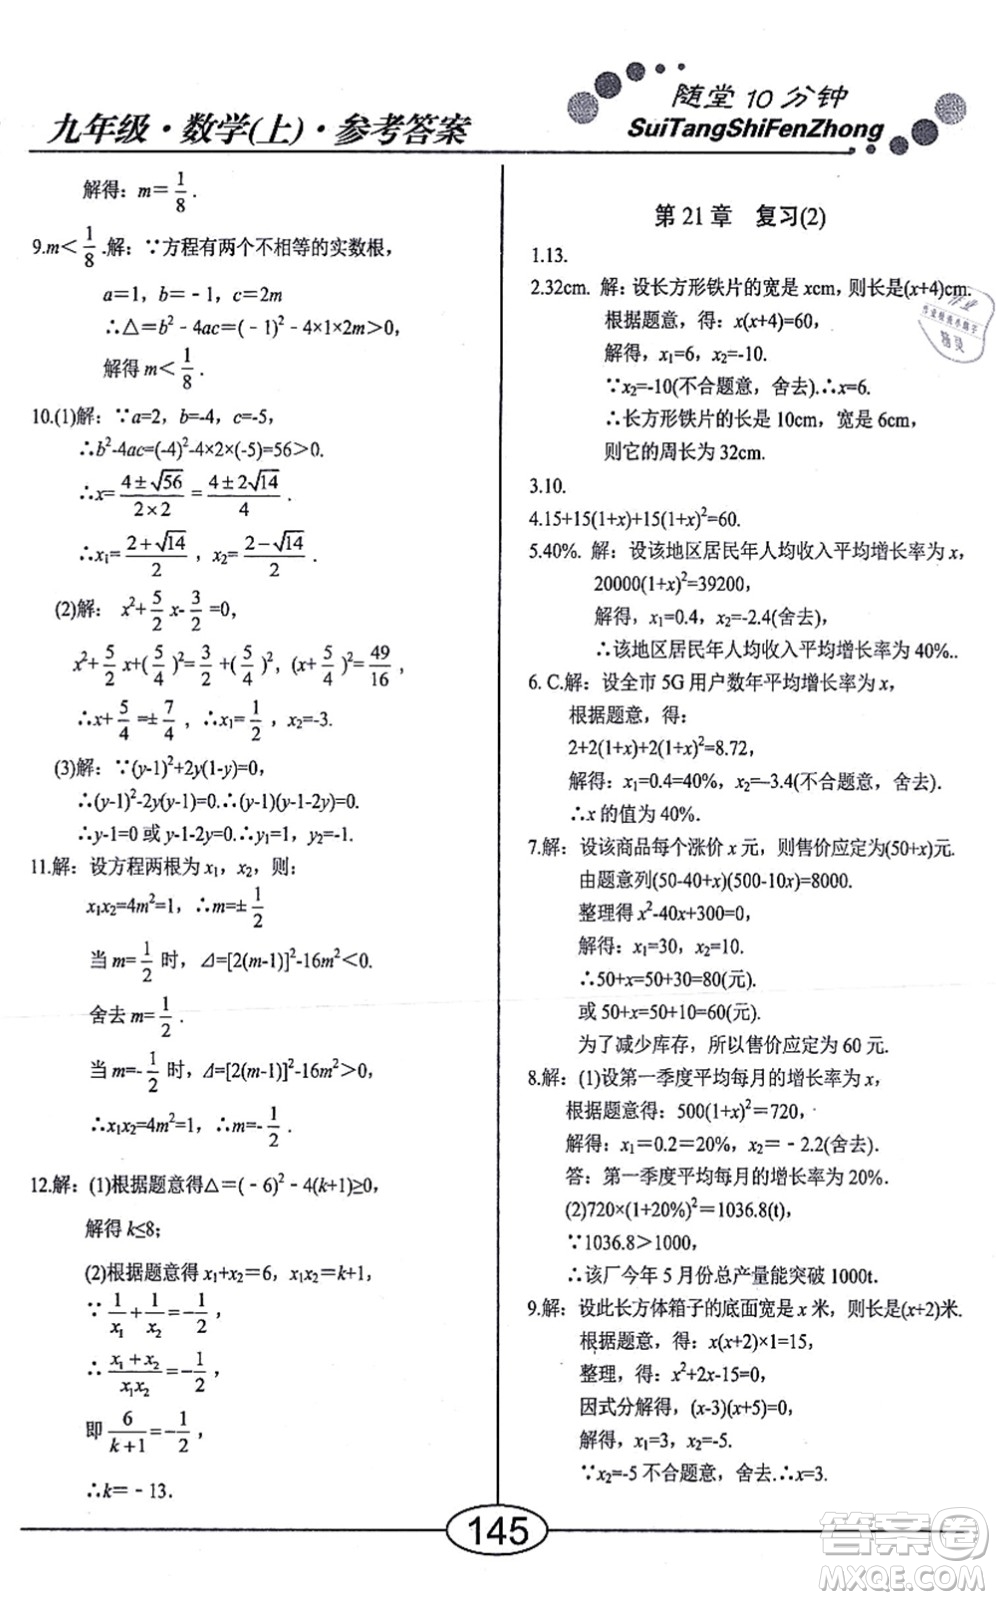 九年级·数学(上)·参考答案
随堂 10 分钟
SuiTangShiFenZhong
解得：m=1/8.
9.m<1/8.解：∵方程有两个不相等的实数根，
a=1，b=-1，c=2m
∴△=b²-4ac=(-1)²-4×1×2m>0,
解得 m<1/8.
10.(1)解：∵a=2，b=-4，c=-5，
∴b²-4ac=(-4)²-4×2×(-5)=56>0.
∴x=(4±√56)/(2×2)=(4±2√14)/4.
∴x₁=(2+√14)/2，x₂=(2-√14)/2.
(2)解： x²+5/2 x-3/2=0，
x²+5/2 x+(5/4)²=3/2+(5/4)²，(x+5/4)²=49/16，
∴x+5/4=±7/4，∴x₁=1/2，x₂=-3.
(3)解：∵(y-1)²+2y(1-y)=0，
∴(y-1)²-2y(y-1)=0.∴(y-1)(y-1-2y)=0.
∴y-1=0 或 y-1-2y=0.∴y₁=1，y₂=-1.
11.解：设方程两根为 x₁，x₂，则：
x₁x₂=4m²=1，∴m=±1/2
当 m=1/2 时，Δ=[2(m-1)]²-16m²<0.
舍去 m=1/2.
当 m=-1/2 时，Δ=[2(m-1)]²-16m²>0，
∴x₁x₂=4m²=1，∴m=-1/2.
12.解：(1)根据题意得△=(-6)²-4(k+1)≥0，
解得 k≤8；
(2)根据题意得 x₁+x₂=6，x₁x₂=k+1，
∵1/x₁+1/x₂=-1/2，
∴(x₁+x₂)/(x₁x₂)=-1/2
即 6/(k+1)=-1/2，
∴k=-13.
第 21 章 复习(2)
1.13.
2.32cm. 解：设长方形铁片的宽是 xcm，则长是(x+4)cm.
根据题意，得：x(x+4)=60，
解得，x₁=6，x₂=-10.
∵x₂=-10(不合题意，舍去).∴x=6.
∴长方形铁片的长是 10cm，宽是 6cm，
则它的周长为 32cm.
3.10.
4.15+15(1+x)+15(1+x)²=60.
5.40%. 解：设该地区居民年人均收入平均增长率为 x，
20000(1+x)²=39200，
解得，x₁=0.4，x₂=-2.4(舍去)，
∴该地区居民年人均收入平均增长率为 40%..
6. C.解：设全市 5G 用户数年平均增长率为 x，
根据题意，得：
2+2(1+x)+2(1+x)²=8.72，
解得：x₁=0.4=40%，x₂=-3.4(不合题意，舍去).
∴x 的值为 40%.
7.解：设该商品每个涨价 x 元，则售价应定为(50+x)元.
由题意列(50-40+x)(500-10x)=8000.
整理得 x²-40x+300=0，
解得：x₁=30，x₂=10.
∴50+x=50+30=80(元).
或 50+x=50+10=60(元).
为了减少库存，所以售价应定为 60 元.
8.解：(1)设第一季度平均每月的增长率为 x，
根据题意得：500(1+x)²=720，
解得：x₁=0.2=20%，x₂=-2.2(舍去).
答：第一季度平均每月的增长率为 20%.
(2)720×(1+20%)²=1036.8(t)，
∵1036.8>1000，
∴该厂今年 5 月份总产量能突破 1000t.
9.解：设此长方体箱子的底面宽是 x 米，则长是(x+2)米.
根据题意，得：x(x+2)×1=15，
整理，得：x²+2x-15=0，
因式分解得，(x-3)(x+5)=0，
解得，x₁=3，x₂=-5.
∵x₂=-5 不合题意，舍去∴x=3.
145
答案圈
MXQE.COM